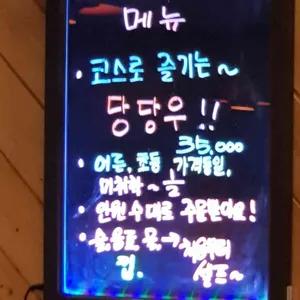 메뉴
• 코스로 즐기는~
당당우!!
35,000
• 어른, 초등 가격동일,
미취학~
• 인원수대로 주문받아요!
• 술, 음료, →
컵.
셀프~